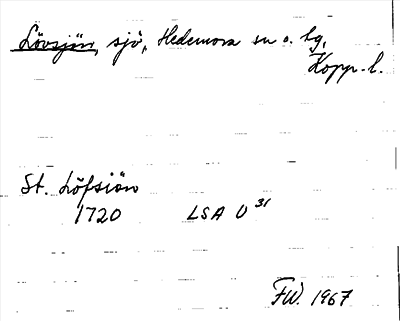 Lövsjön, sjö, Hedemora sn o. hg,
Kopp. l.
St. Löfsiön
1720 LSA U 31
FW. 1967